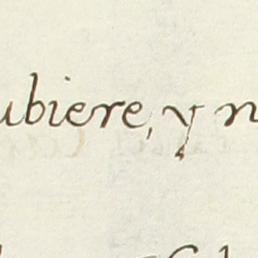 ubiere, y n